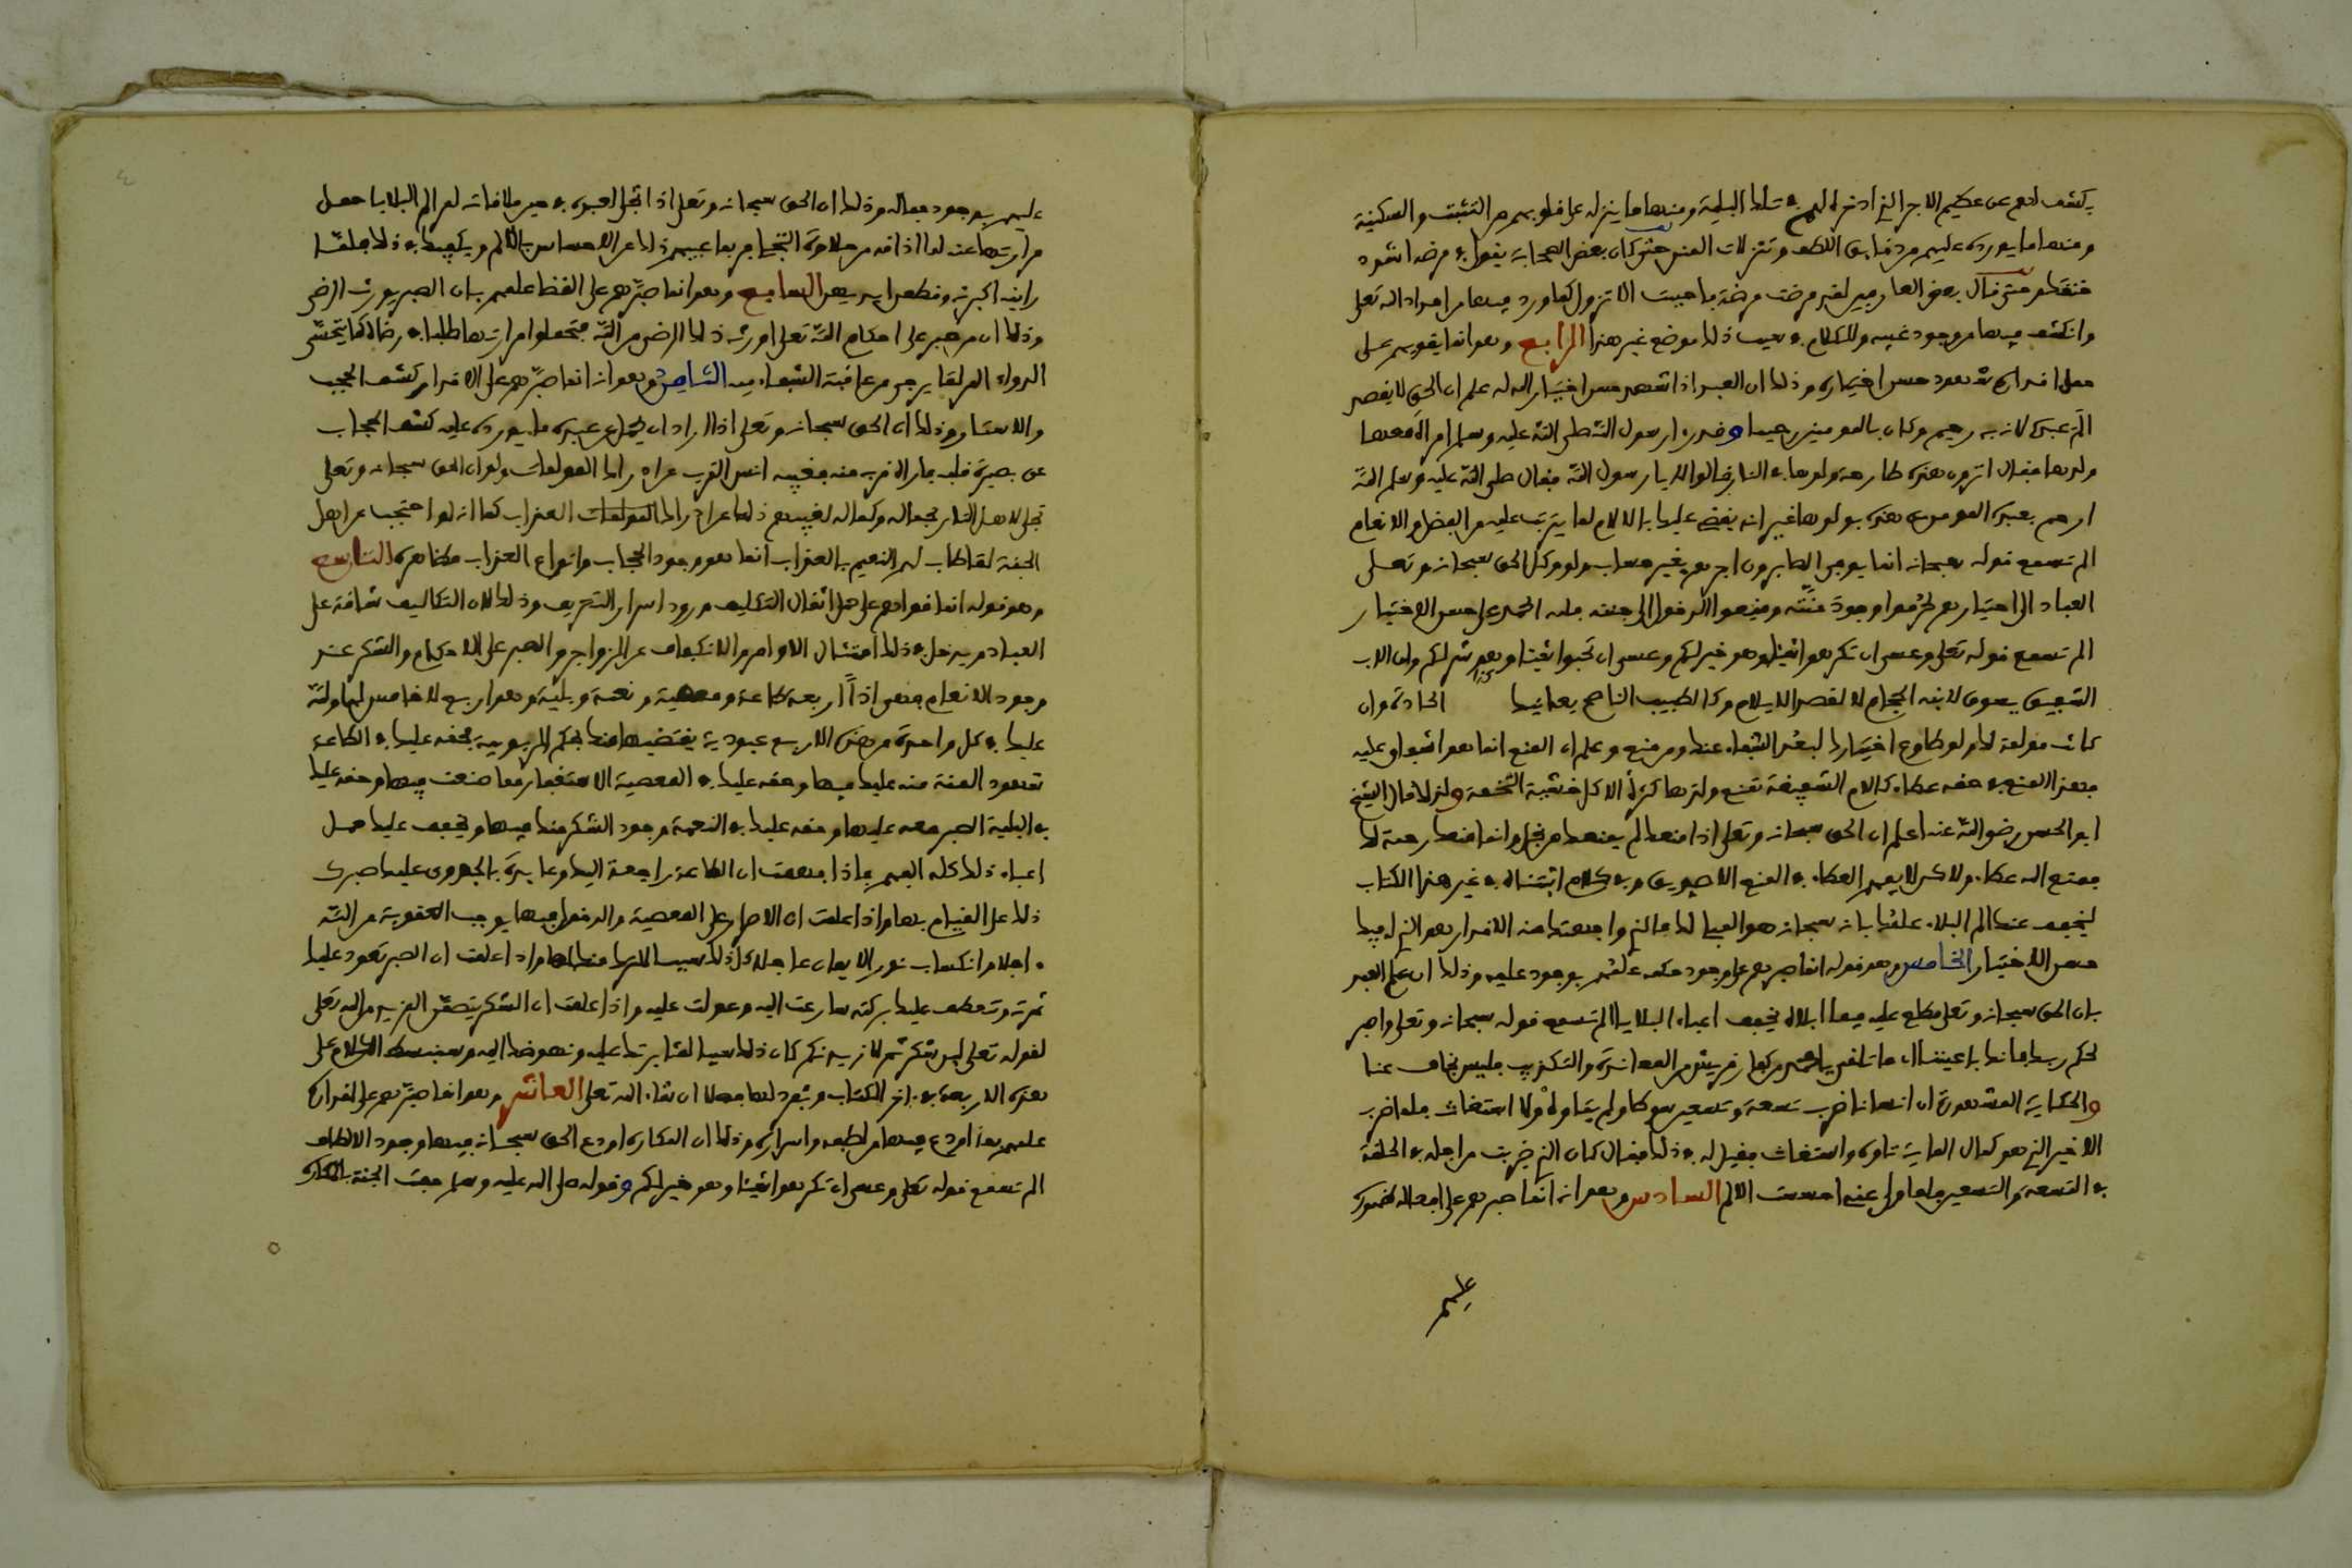 يكشف لهم عن عظيم الاجر الذي ادخره لهم في تلك البلية ومنها ما ينزله على قلوبهم من التثبت والسكينة
ومنها ما يورده عليهم من دقايق اللطف وتنزلات المنن حتى كان بعض الصحابة يقول في مرضه اشدد
خنقك حتى قال بعض العارفين لقد مرضت مرضة فاحببت الا تزول لما ورد فيها من امداد الله تعلى
وانكشف فيها من وجود غيبه وللكلام في سبب ذلك موضع غير هذا الرابع وهو انما يقويهم على
حمل اقداره شهود حسن اختياره وذلك ان العبد اذا شهد حسن اختيار الله له علم ان الحق لا يقصد
الم عبده لانه به رحيم وكان بالمومنين رحيما وقد را رسول الله صلى الله عليه وسلم امراة معها
ولدها فقال اترون هذه طارحة ولدها في النار قالوا لا يا رسول الله فقال صلى الله عليه وسلم الله
ارحم بعبده المومن من هذه بولدها غير انه يقضي عليك بالالام لما يترتب عليه من الفضل والانعام
الم تسمع قوله سبحانه انما يوفى الصابرون اجرهم بغير حساب ولو وكل الحق سبحانه وتعلى
العباد الى اختيارهم لحرموا وجود منته ومنعوا الدخول الى جنته فله الحمد على حسن الاختيار
الم تسمع قوله تعلى وعسى ان تكرهوا شيئا وهو خير لكم وعسى ان تحبوا شيئا وهو شر لكم وان الاب
الشفيق يسوق لابنه الحجام لا لقصد الايلام وكالطبيب الناصح يعانيك الحادة وان
كانت مولمة لك ولو طاوع اختيارك لبعد الشفاء عنك ومن منع وعلم ان المنع انما هو اشفاق عليه
فهذا المنع في حقه عطاء كالام الشفيقة تمنع ولدها كثرة الاكل خشية التخمة ولذلك قال الشيخ
ابو الحسن رضي الله عنه اعلم ان الحق سبحانه وتعلى اذا منعك لم يمنعك من بخل وانما منعك رحمة لك
فمنع الله عطاء ولاكن لا يفهم العطاء في المنع الا صديق وفي كلام اثبتناه في غير هذا الكتاب
ليخفف عنك الم البلاء علمك بانه سبحانه هو المبلي لك فالذي واجهتك منه الاقدار هو الذي له فيك
حسن الاختيار الخامس وهو قوله انما صبرهم على وجود حكمه علمهم بوجود علمه وذلك ان علم العبد
بان الحق سبحانه وتعلى مطلع عليه فيما ابلاه يخفف اعباء البلايا الم تسمع قوله سبحانه وتعلى واصبر
لحكم ربك فانك باعيننا اي ما تلقى يا محمد من كفار قريش من المعاندة والتكذيب فليس بخاف عنا
والحكاية المشهورة ان انسانا ضرب تسعة وتسعين سوطا ولم يتاوه ولا استغاث فلما ضرب
الاخير الذي هو كمال الماية تاوه واستغاث فقيل له في ذلك فقال كان الذي ضربت من اجله في الحلقة
في التسعة والتسعين فلما ولى عني احسست الالم السادس وهو انه انما صبرهم على افعاله ظهوره
عليهم
عليهم بوجود جماله وذلك ان الحق سبحانه وتعلى اذا تجلى لعبده في حين ملاقاته لم الم البلايا حمل
مرارتها عنه لما اذاقه من حلاوة التجلي فربما غيبهم ذلك عن الاحساس بالالم ويكفيك في ذلك فلما
راينه اكبرنه وقطعن ايديهن السابع وهو انما صبرهم على القضا علمهم بان الصبر يورث الرضى
وذلك ان من صبر على احكام الله تعلى اورثه ذلك الرضى من الله فتحملوا مرارتها طلبا في رضاه كما يتحسى
الدواء المر لما يرجى من عاقبة الشفاء فيه الثامن وهو انه انما صبرهم على الاقدار كشف الحجب
والاستار وذلك ان الحق سبحانه وتعلى اذا اراد ان يحمل عن عبده ما يورده عليه كشف الحجاب
عن بصيرة قلبه فاراه قربه منه فغيبه انس القرب عن ادراك المولمات ولو ان الحق سبحانه وتعلى
تجلى لاهل النار بجماله وكماله لغيبهم ذلك عن ادراك العذاب كما انه لو احتجب عن اهل
الجنة لما طاب لهم النعيم فالعذاب انما هو وجود الحجاب وانواع العذاب مظاهره التاسع
وهو قوله انما قواهم على حمل اثقال التكليف ورود اسرار التعريف وذلك لان التكاليف شاقة على
العباد ويدخل في ذلك امتثال الاوامر والانكفاف عن الزواجر والصبر على الاحكام والشكر عند
وجود الانعام فهي اذا اربعة طاعة ومعصية ونعمة وبلية وهو اربع لا خامس لها ولله
عليك في كل واحدة من هذه الاربع عبودية يقتضيها منك بحكم الربوبية فحقه عليك في الطاعة
شهود المنة منه عليك فيها وحقه عليك في المعصية الاستغفار مما ضيعت فيها وحقه عليك
في البلية الصبر معه عليها وحقه عليك في النعمة وجود الشكر منك فيها ويخفف عليك حمل
اعباء ذلك كله الفهم فاذا فهمت ان الطاعة راجعة اليك وعايدة بالجدوى عليك صبرك
ذلك على القيام بها واذا علمت ان الاصرار على المعصية والدخول فيها يوجب العقوبة من الله
اجلا وانكساف نور الايمان عاجلا كان ذلك سبب الترك منك لها واذا علمت ان الصبر تعود عليك
ثمرته وتنعطف عليك بركته سارعت اليه وعولت عليه واذا علمت ان الشكر يتضمن المزيد من الله تعلى
لقوله تعلى لين شكرتم لازيدنكم كان ذلك سببا لمثابرتك عليه ونهوضك اليه وسنبسط الكلام على
هذه الاربعة في اخر الكتاب ونفرد لها فصلا ان شاء الله تعلى العاشر وهو انما صبرهم على اقداره
علمهم بما اودع فيها من لطفه وابراره وذلك ان المكاره اودع الحق سبحانه فيها وجود الالطاف
الم تسمع قوله تعلى وعسى ان تكرهوا شيئا وهو خير لكم وقوله صلى الله عليه وسلم حفت الجنة بالمكاره